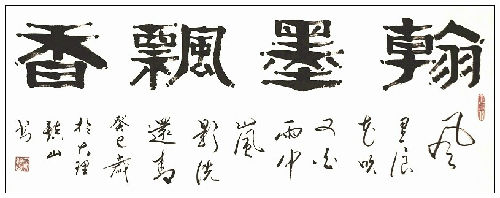 翰墨飄香
風
里浪
花吹
又白
雨中
嵐
影洗
還青
癸巳歲
於大理
山
書